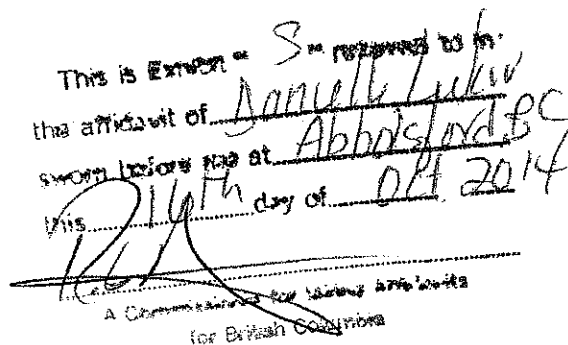 This is Exhibit " S " referred to in
the affidavit of Danielle Lukiv
sworn before me at Abbotsford, BC
this 16th day of Oct. 2014
A Commissioner for taking affidavits
for British Columbia